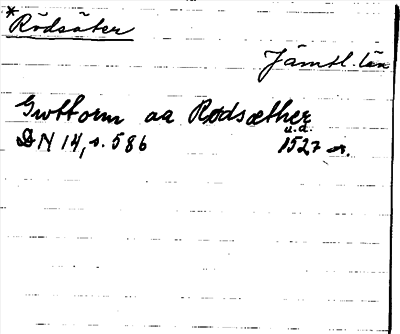 * Rödsäter
Jämtl. län
Guttorm aa Rødsæther
u.d.
DN 14, s. 586 1527